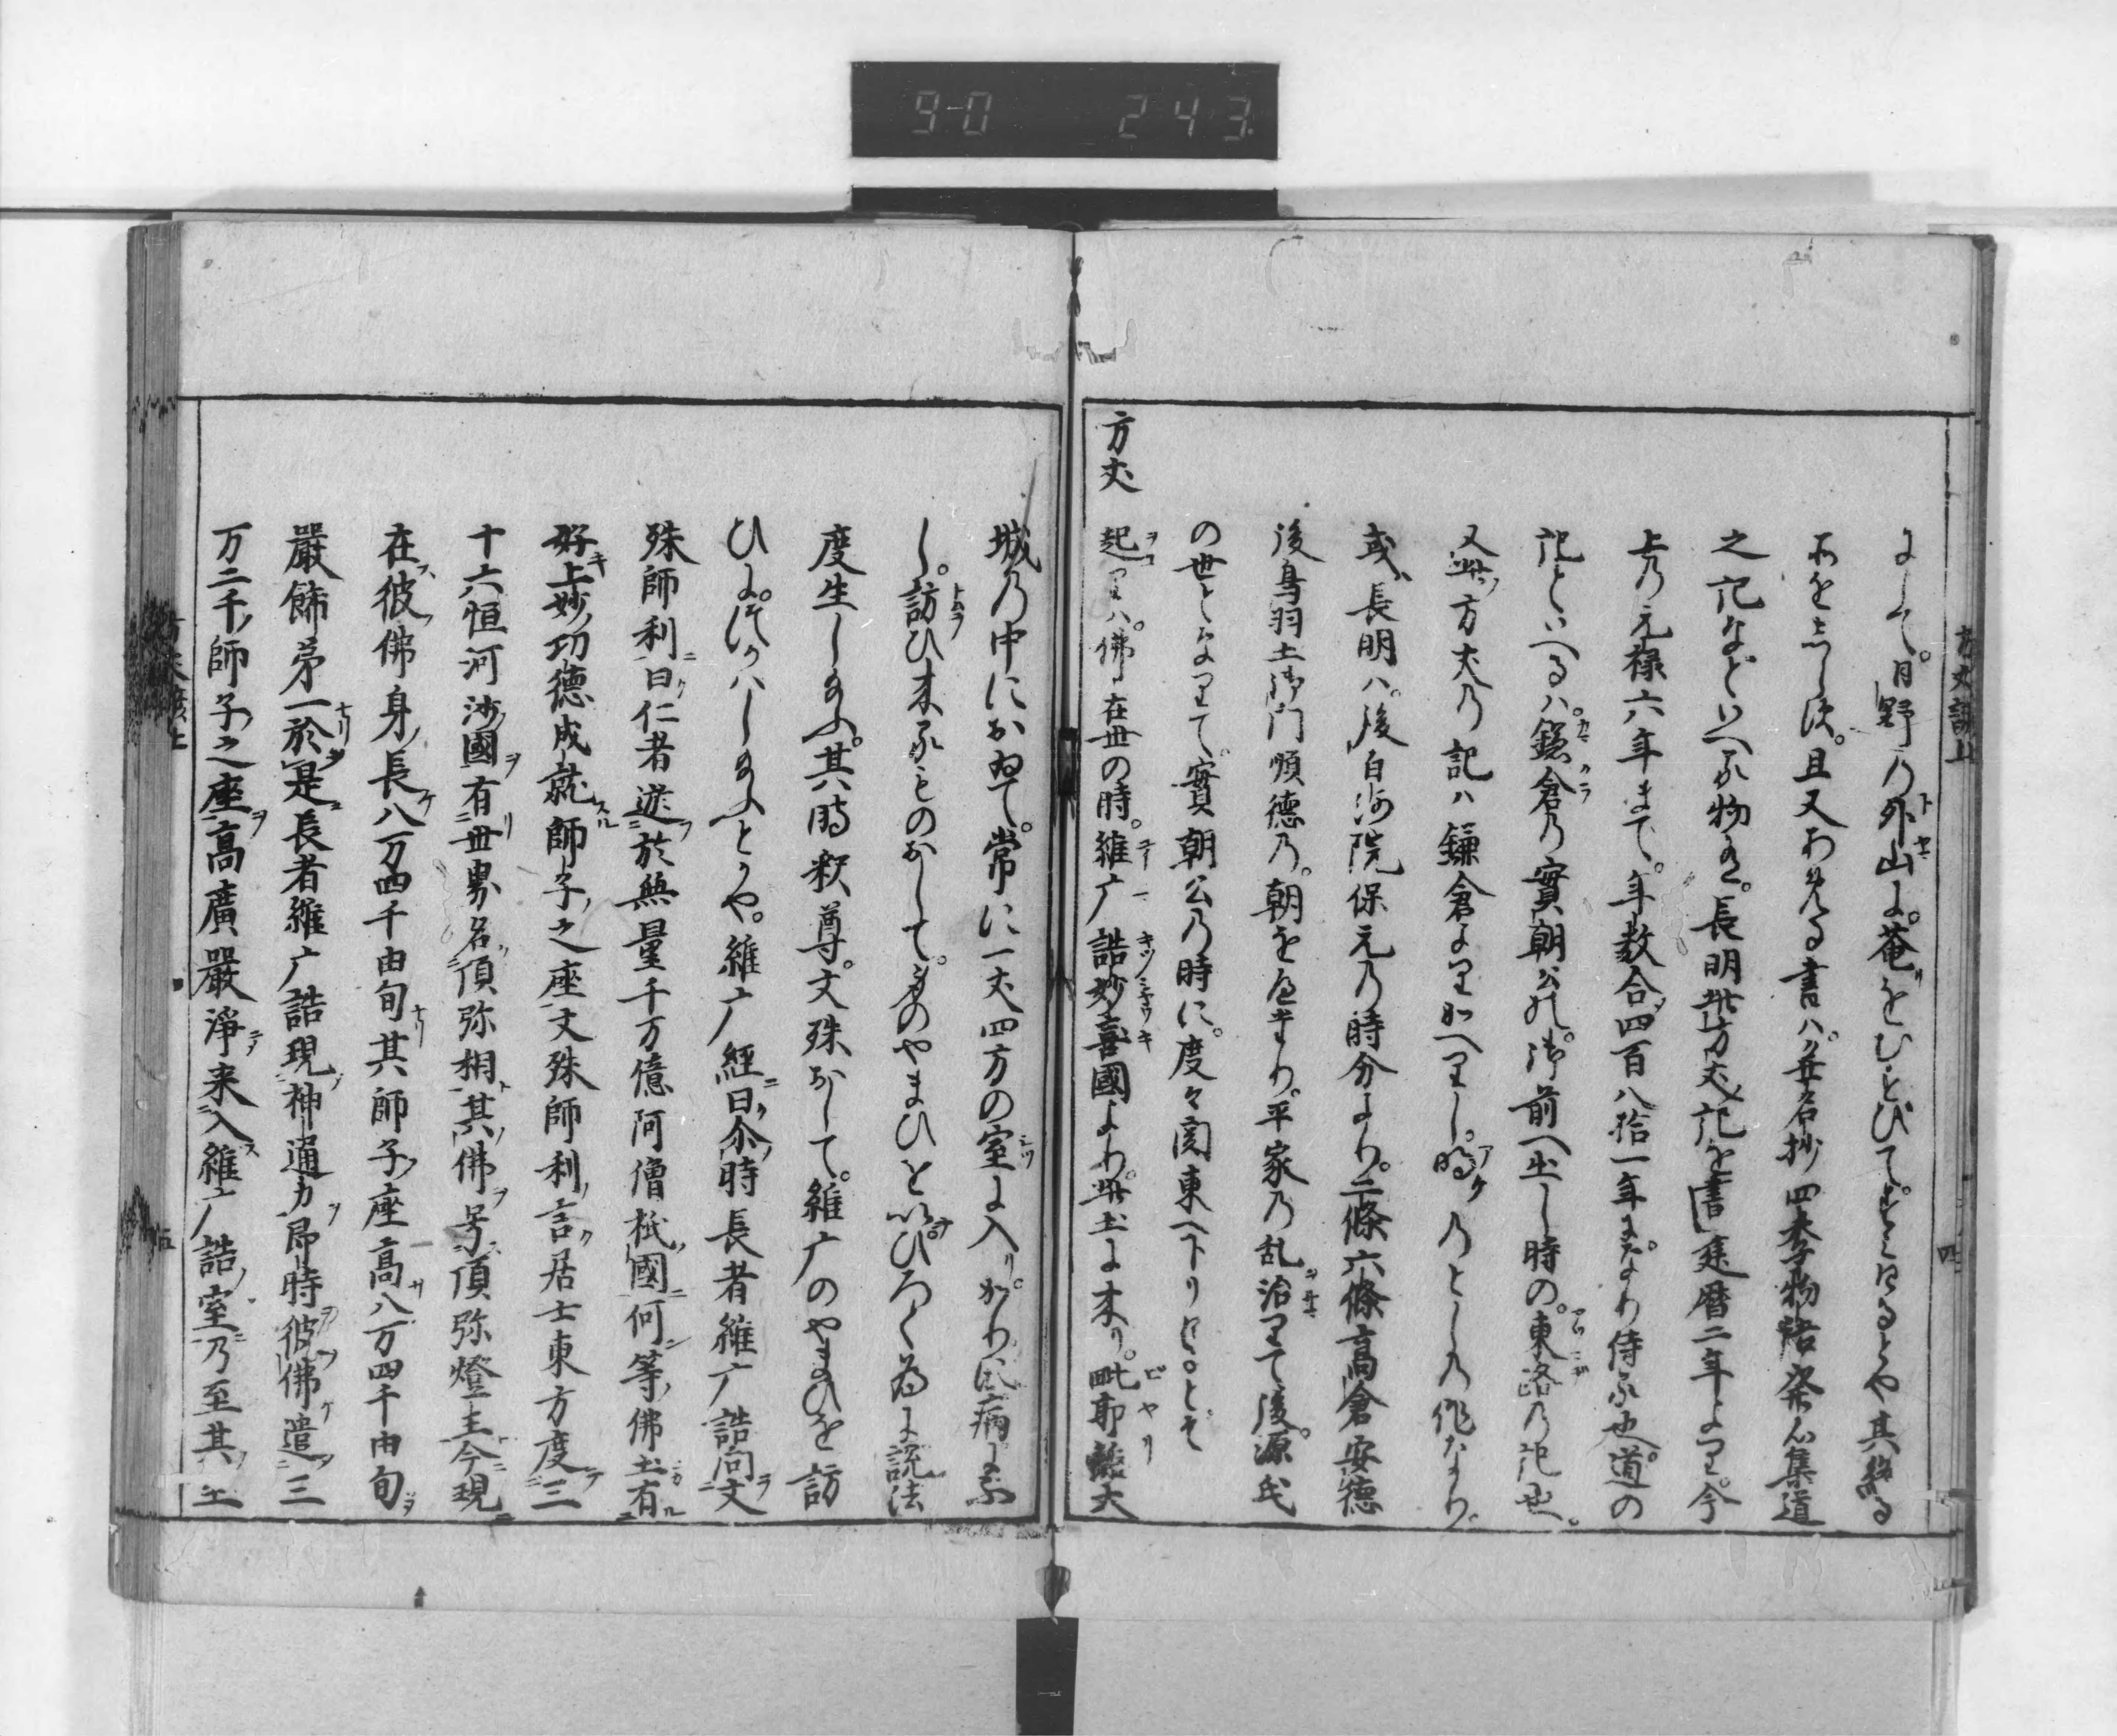 90 243
方丈諺上
四
よして。日野乃外山よ。菴をむすびてすミけるとや其終る
所をしらず。且又あらハせる書ハ。無名抄四季物語発心集道
之記などいへる物也。長明此方丈記を書建暦二年より。今
上乃元禄六年まで。年数合四百八拾一年になり侍る也。道の
記といへるハ。鎌倉乃實朝公の。御前へ出し時の。東路乃記也。
又此方丈乃記ハ鎌倉よりかへりし。明乃としの作なり。
或、長明ハ。後白河院保元乃時分より。二條六條高倉安徳
後鳥羽土御門順徳乃。朝をへたり。平家乃乱治りて後。源氏
の世となりて。實朝公乃時に。度々関東へ下りけるとぞ
方丈 起りハ。佛在世の時。維广詰妙喜國より。此土よ来り。毗耶離大
城乃中におゐて。常に一丈四方の室よ入り。かりに病よふ
し。訪ひ来るものおして。身のやまひといひ。ひろく為よ説法
度生し給ふ。其時釈尊。文殊おして。維广のやまひを訪
ひよ。つかハし給ふとかや。維广經曰尒時長者維广詰問文
殊師利曰仁者遊於無量千万億阿僧祇國何等佛土有
好上妙功徳成就師子之座文殊師利言居士東方度三
十六恒河沙國有世界名湏弥相其佛号湏弥燈王今現
在彼佛身長八万四千由旬其師子座高八万四千由旬
嚴飾第一於是長者維广詰現神通力即時彼佛遣三
万二千師子之座高廣嚴淨来入維广詰室乃至其
五